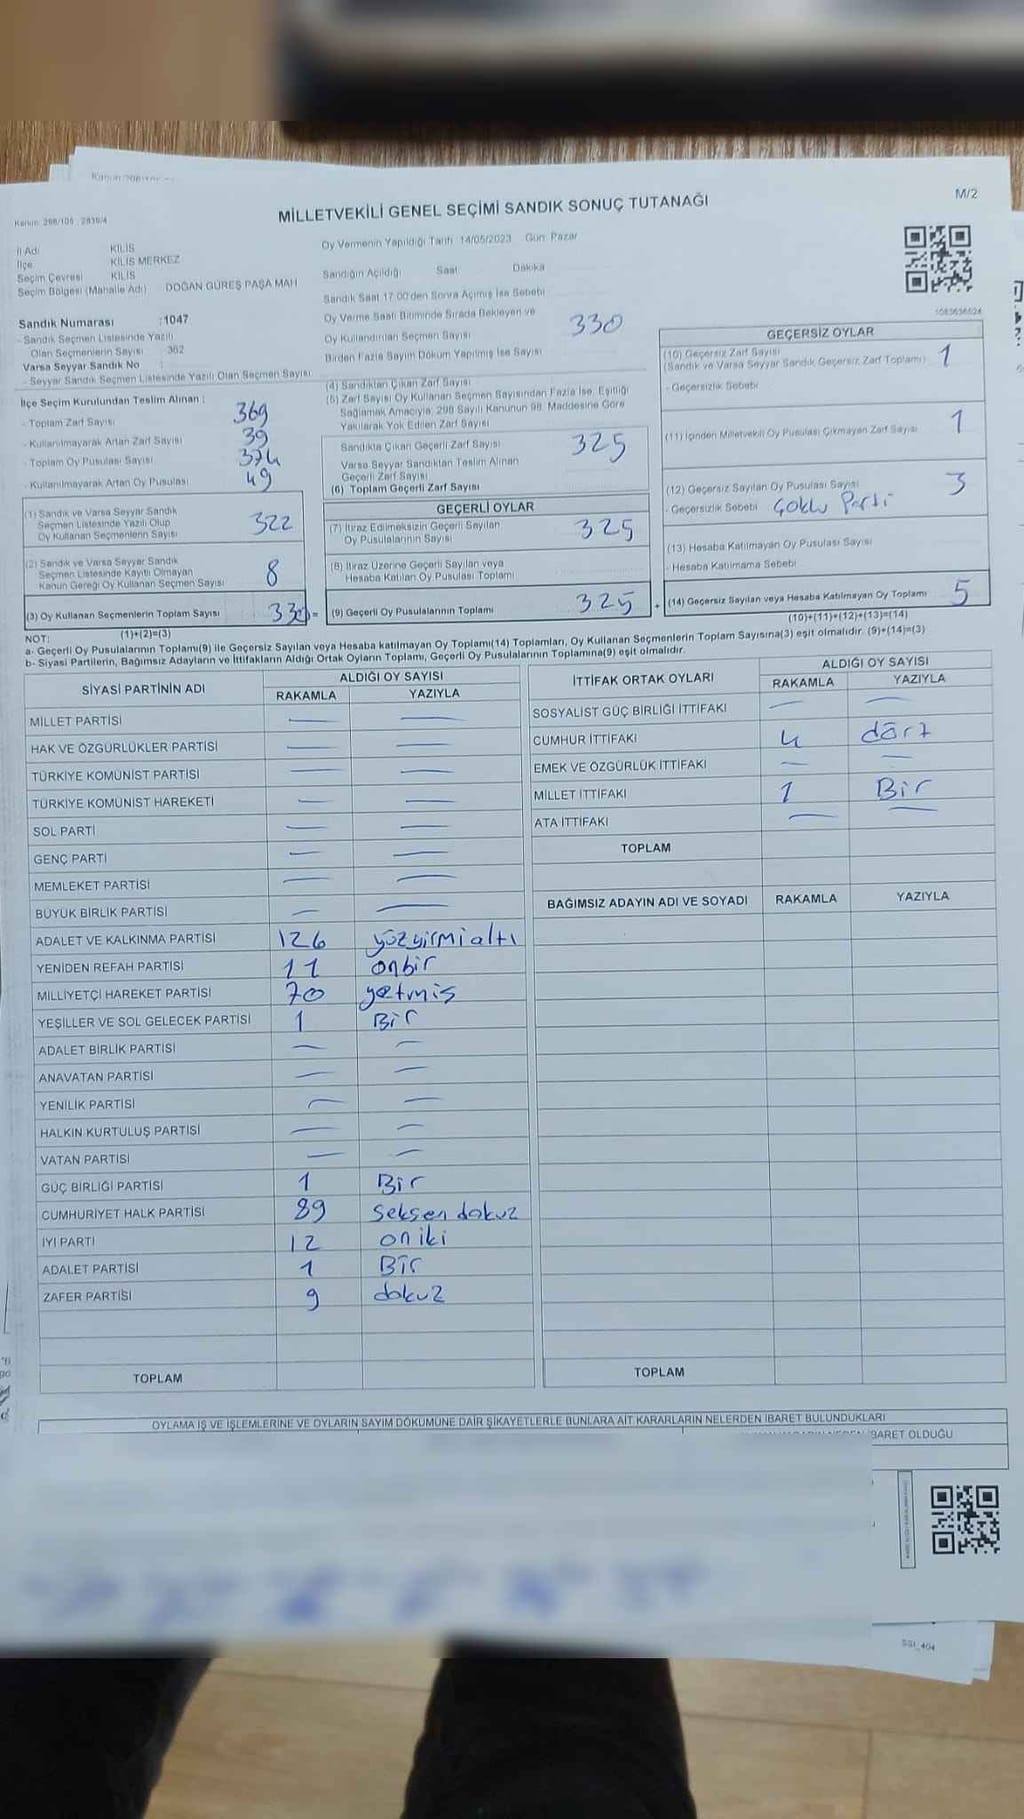 M/2
MİLLETVEKİLİ GENEL SEÇİMİ SANDIK SONUÇ TUTANAĞI
Kanun: 298/105 - 2839/4
İl Adı KİLİS
İlçe KİLİS MERKEZ
Seçim Çevresi KİLİS
Seçim Bölgesi (Mahalle Adı) DOĞAN GÜREŞ PAŞA MAH
Sandık Numarası : 1047
- Sandık Seçmen Listesinde Yazılı
Olan Seçmenlerin Sayısı : 362
Varsa Seyyar Sandık No :
- Seyyar Sandık Seçmen Listesinde Yazılı Olan Seçmen Sayısı
Oy Vermenin Yapıldığı Tarih 14/05/2023 Gün: Pazar
Sandığın Açıldığı Saat Dakika
Sandık Saat 17:00'den Sonra Açılmış İse Sebebi
Oy Verme Saati Bitiminde Sırada Bekleyen ve
Oy Kullandırılan Seçmen Sayısı 330
Birden Fazla Sayım Döküm Yapılmış İse Sayısı
İlçe Seçim Kurulundan Teslim Alınan :
- Toplam Zarf Sayısı 369
- Kullanılmayarak Artan Zarf Sayısı 39
- Toplam Oy Pusulası Sayısı 374
- Kullanılmayarak Artan Oy Pusulası 49
(1) Sandık ve Varsa Seyyar Sandık
Seçmen Listesinde Yazılı Olup
Oy Kullanan Seçmenlerin Sayısı 322
(2) Sandık ve Varsa Seyyar Sandık
Seçmen Listesinde Kayıtlı Olmayan
Kanun Gereği Oy Kullanan Seçmen Sayısı 8
(3) Oy Kullanan Seçmenlerin Toplam Sayısı 330 =
(1)+(2)=(3)
(4) Sandıktan Çıkan Zarf Sayısı
(5) Zarf Sayısı Oy Kullanan Seçmen Sayısından Fazla İse, Eşitliği
Sağlamak Amacıyla, 298 Sayılı Kanunun 98. Maddesine Göre
Yakılarak Yok Edilen Zarf Sayısı
Sandıkta Çıkan Geçerli Zarf Sayısı 325
Varsa Seyyar Sandıktan Teslim Alınan
Geçerli Zarf Sayısı
(6) Toplam Geçerli Zarf Sayısı
GEÇERLİ OYLAR
(7) İtiraz Edilmeksizin Geçerli Sayılan
Oy Pusulalarının Sayısı 325
(8) İtiraz Üzerine Geçerli Sayılan veya
Hesaba Katılan Oy Pusulası Toplamı
(9) Geçerli Oy Pusulalarının Toplamı 325 +
1083636524
GEÇERSİZ OYLAR
(10) Geçersiz Zarf Sayısı
(Sandık ve Varsa Seyyar Sandık Geçersiz Zarf Toplamı) 1
- Geçersizlik Sebebi
(11) İçinden Milletvekili Oy Pusulası Çıkmayan Zarf Sayısı 1
(12) Geçersiz Sayılan Oy Pusulası Sayısı 3
- Geçersizlik Sebebi Çoklu Parti
(13) Hesaba Katılmayan Oy Pusulası Sayısı
- Hesaba Katılmama Sebebi
(14) Geçersiz Sayılan veya Hesaba Katılmayan Oy Toplamı 5
(10)+(11)+(12)+(13)=(14)
NOT:
a- Geçerli Oy Pusulalarının Toplamı(9) ile Geçersiz Sayılan veya Hesaba katılmayan Oy Toplamı(14) Toplamları, Oy Kullanan Seçmenlerin Toplam Sayısına(3) eşit olmalıdır. (9)+(14)=(3)
b- Siyasi Partilerin, Bağımsız Adayların ve İttifakların Aldığı Ortak Oyların Toplamı, Geçerli Oy Pusulalarının Toplamına(9) eşit olmalıdır.
SİYASİ PARTİNİN ADI ALDIĞI OY SAYISI
RAKAMLA YAZIYLA
MİLLET PARTİSİ — —
HAK VE ÖZGÜRLÜKLER PARTİSİ — —
TÜRKİYE KOMÜNİST PARTİSİ — —
TÜRKİYE KOMÜNİST HAREKETİ — —
SOL PARTİ — —
GENÇ PARTİ — —
MEMLEKET PARTİSİ — —
BÜYÜK BİRLİK PARTİSİ — —
ADALET VE KALKINMA PARTİSİ 126 yüzyirmialtı
YENİDEN REFAH PARTİSİ 11 onbir
MİLLİYETÇİ HAREKET PARTİSİ 70 yetmiş
YEŞİLLER VE SOL GELECEK PARTİSİ 1 Bir
ADALET BİRLİK PARTİSİ — —
ANAVATAN PARTİSİ — —
YENİLİK PARTİSİ — —
HALKIN KURTULUŞ PARTİSİ — —
VATAN PARTİSİ — —
GÜÇ BİRLİĞİ PARTİSİ 1 Bir
CUMHURİYET HALK PARTİSİ 89 Seksen dokuz
İYİ PARTİ 12 oniki
ADALET PARTİSİ 1 Bir
ZAFER PARTİSİ 9 dokuz
TOPLAM
İTTİFAK ORTAK OYLARI ALDIĞI OY SAYISI
RAKAMLA YAZIYLA
SOSYALİST GÜÇ BİRLİĞİ İTTİFAKI — —
CUMHUR İTTİFAKI 4 dört
EMEK VE ÖZGÜRLÜK İTTİFAKI — —
MİLLET İTTİFAKI 1 Bir
ATA İTTİFAKI — —
TOPLAM
BAĞIMSIZ ADAYIN ADI VE SOYADI RAKAMLA YAZIYLA
TOPLAM
OYLAMA İŞ VE İŞLEMLERİNE VE OYLARIN SAYIM DÖKÜMÜNE DAİR ŞİKAYETLERLE BUNLARA AİT KARARLARIN NELERDEN İBARET BULUNDUKLARI
İBARET OLDUĞU